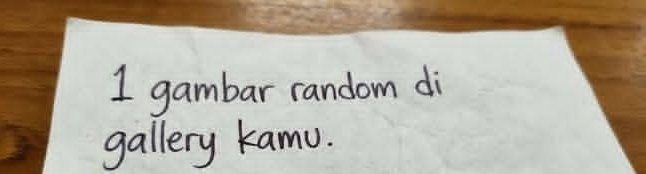 1 gambar random di
gallery kamu.